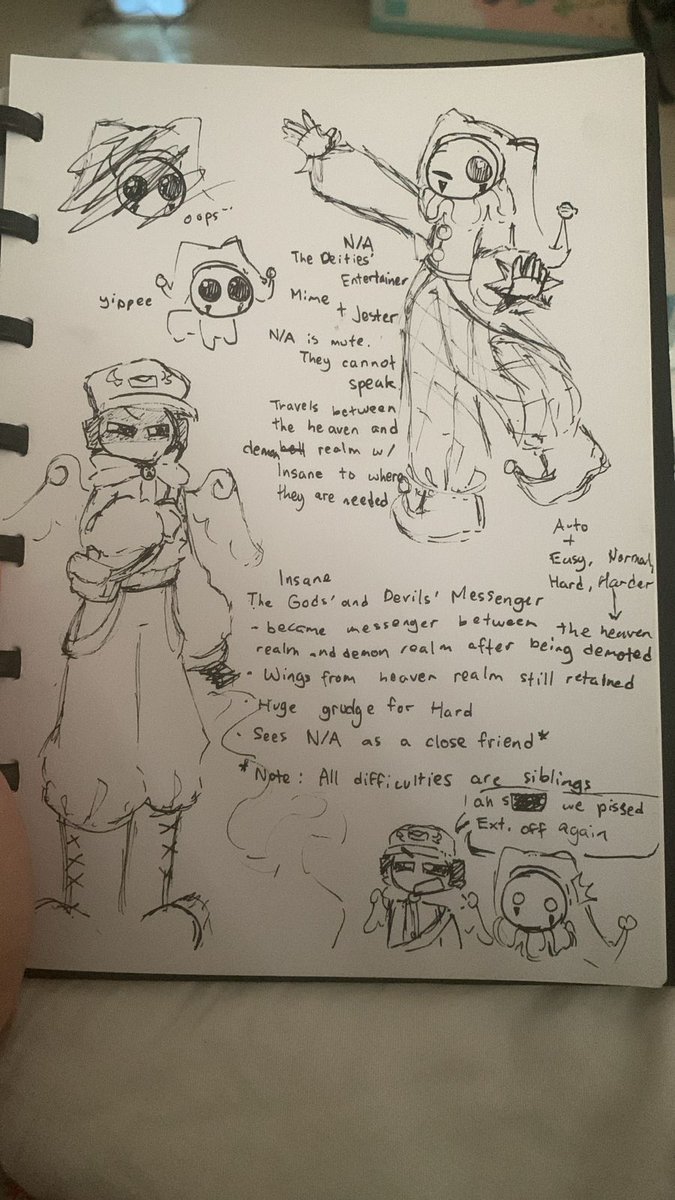 oops--
yippee
N/A
The Deities'
Entertainer
Mime
+ Jester
N/A is mute.
They cannot
speak
Travels between
the heaven and
demon realm w/
Insane to where
they are needed
Auto
+
Easy, Normal,
Hard, Harder
Insane
The Gods' and Devils' Messenger
- became messenger between the heaven
realm and demon realm after being demoted
- Wings from heaven realm still retained
· Huge grudge for Hard
· Sees N/A as a close friend*
*Note: All difficulties are siblings
ah s we pissed
Ext. off again